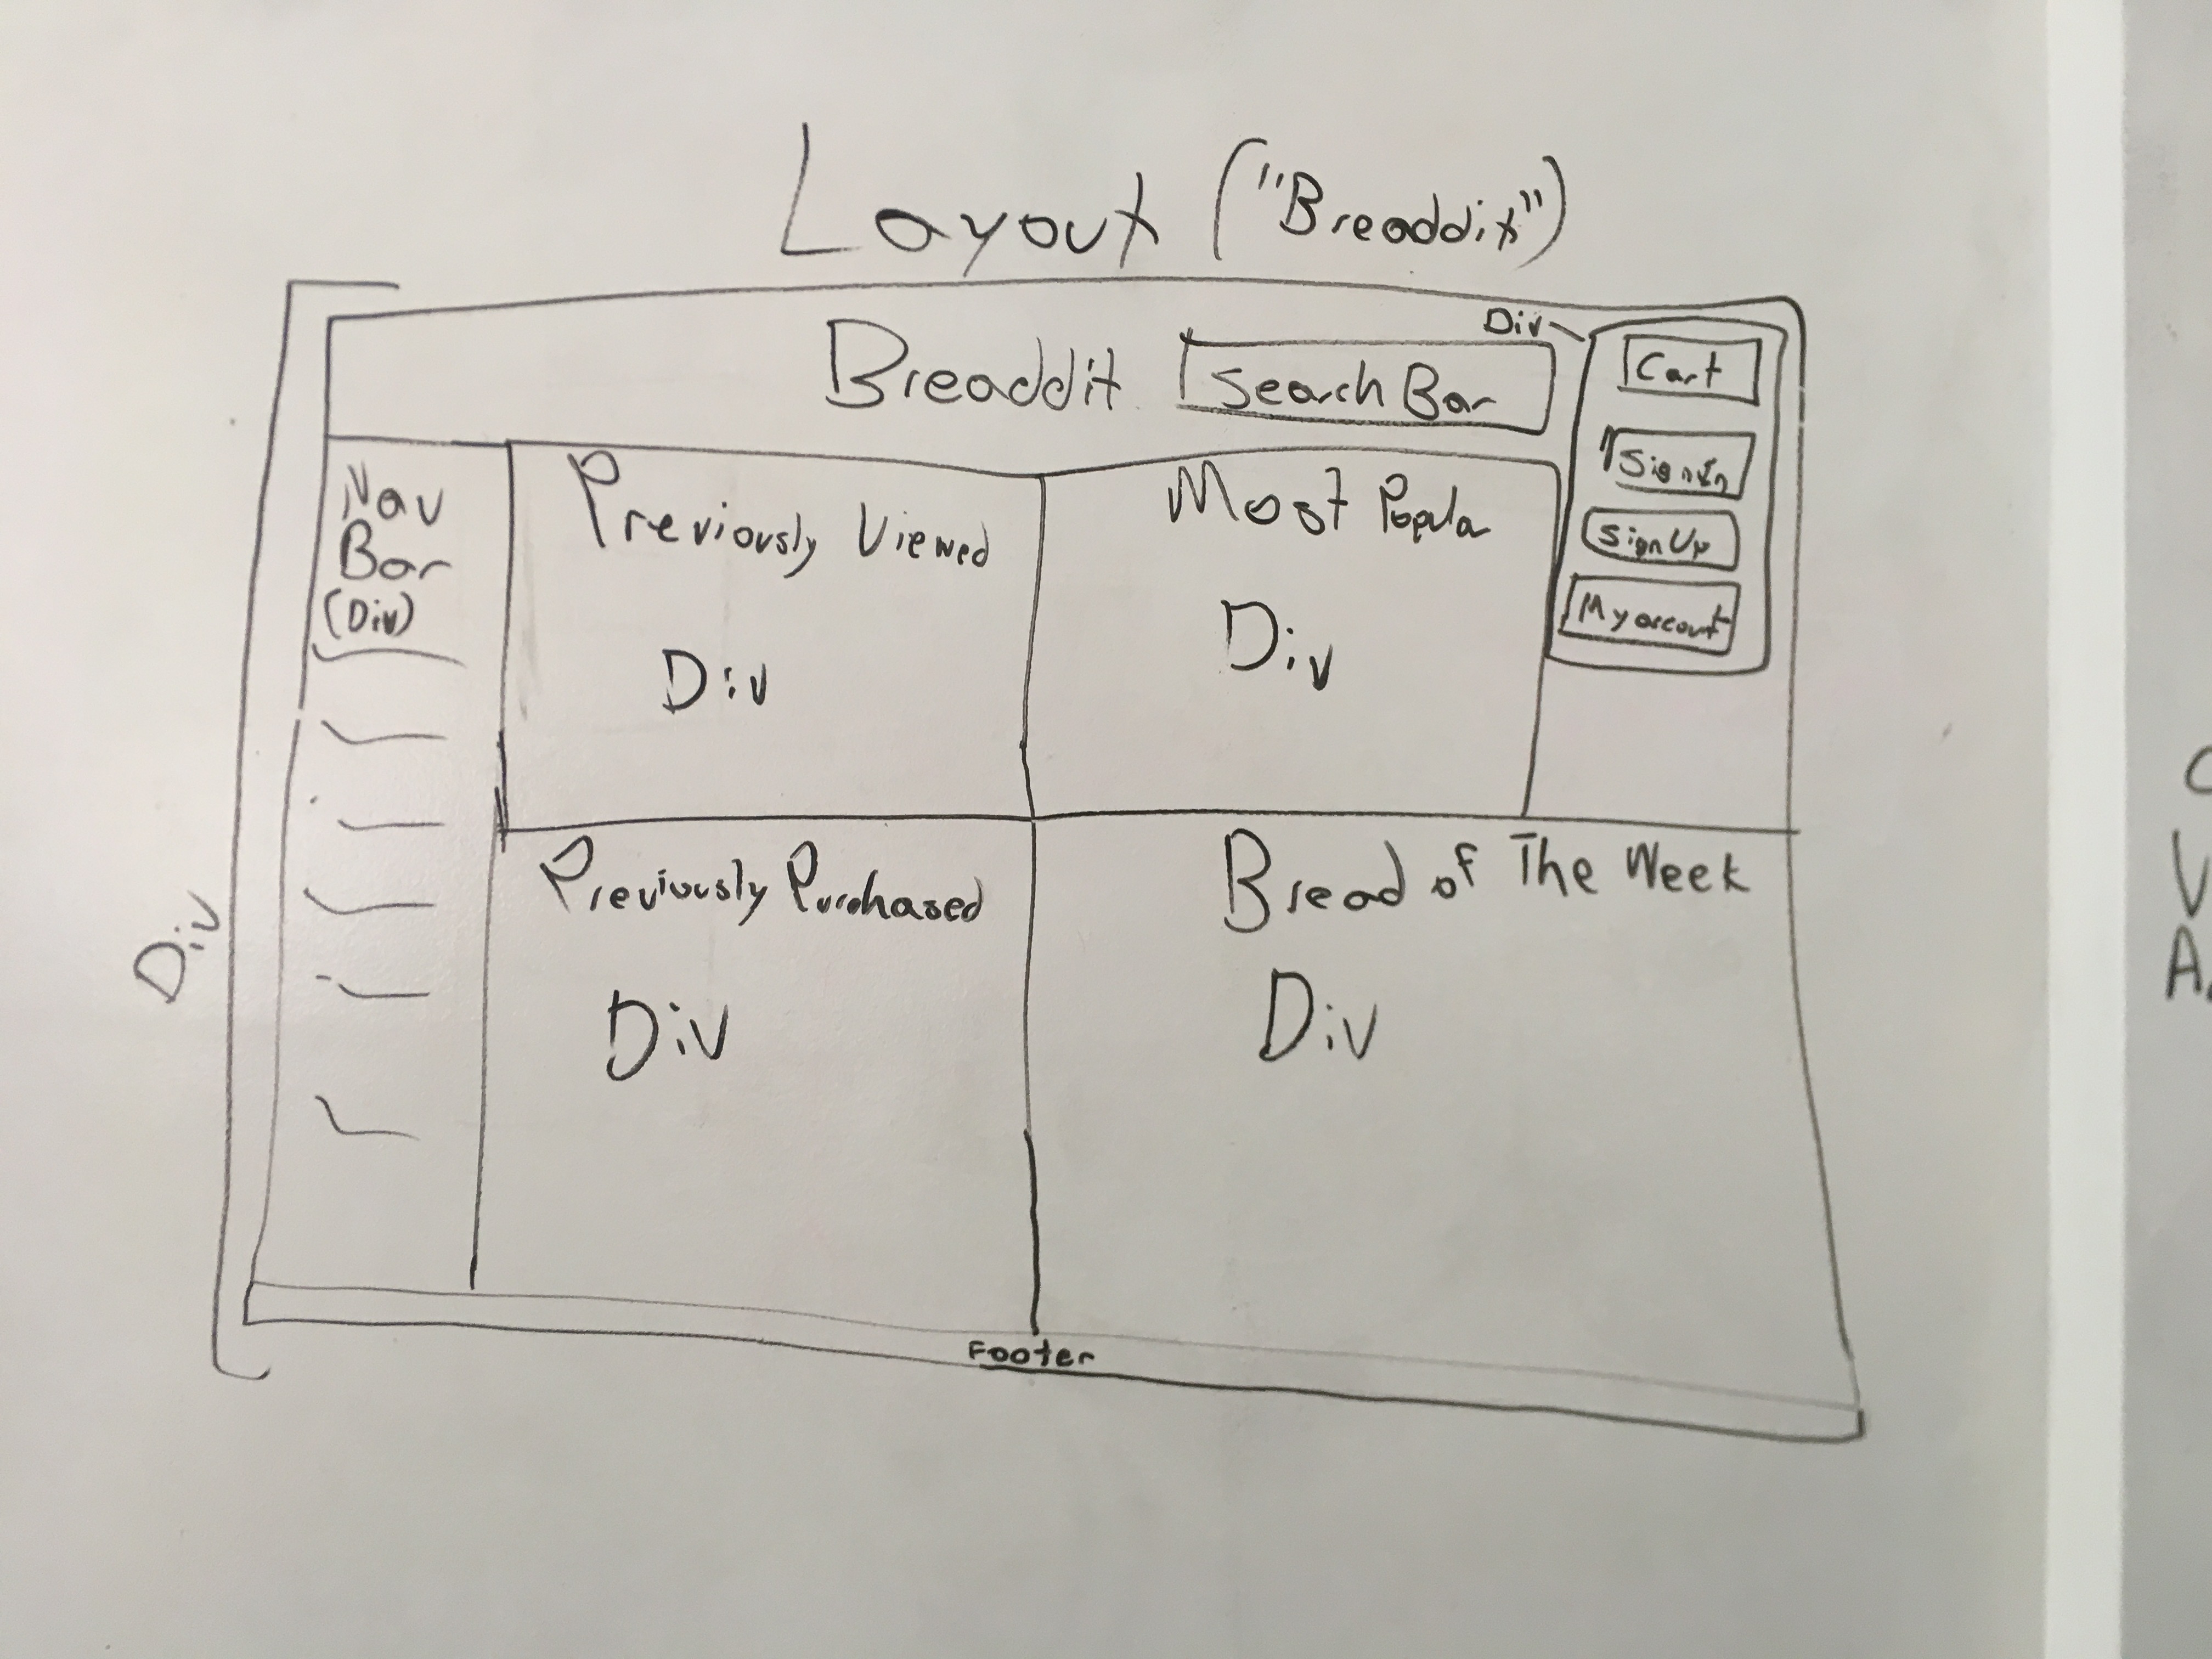 Layout ("Breaddit")
Div
Breaddit
Search Bar
Cart
Sign In
Sign Up
My account
Nav
Bar
(Div)
Previously Viewed
Div
Most Popular
Div
Previously Purchased
Div
Bread of The Week
Div
Div
Footer